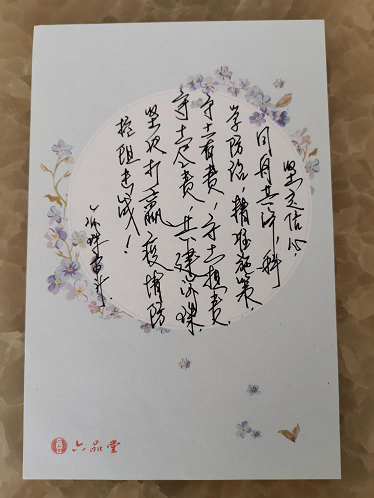 坚定信心,
同舟共济,科
学防治,精准施策,
守土有责,守土担责,
守土尽责 共建
坚决打赢疫情防
控阻击战!
六品堂